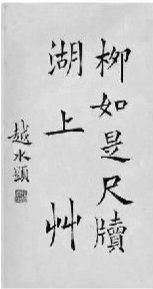 柳如是尺牘
湖上艸
越水頭